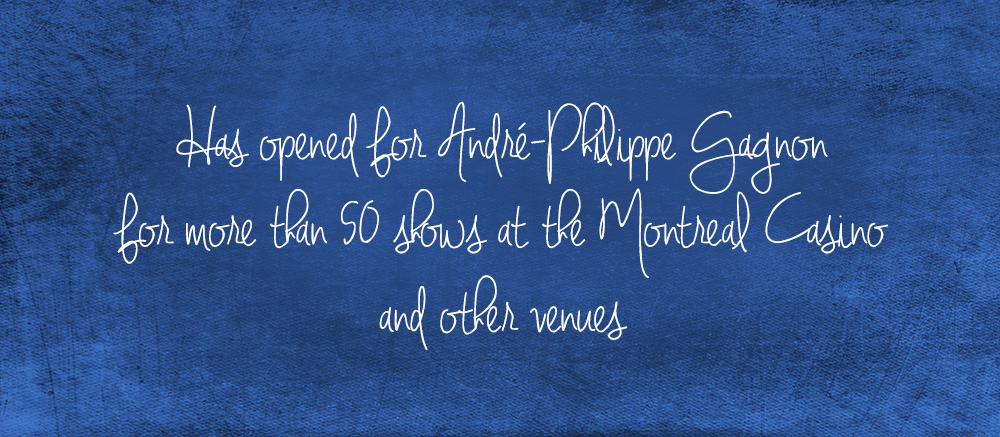 Has opened for André-Philippe Gagnon
for more than 50 shows at the Montreal Casino
and other venues